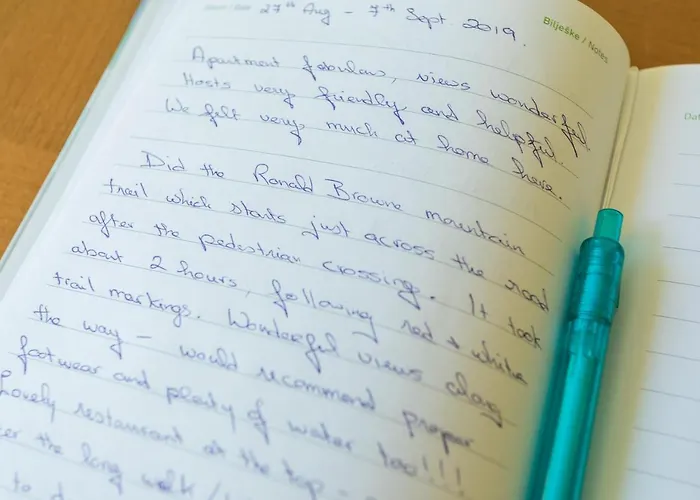 27th Aug - 7th Sept 2019.
Bilješke / Notes
Apartment fabulous, views wonderful.
Hosts very friendly and helpful.
We felt very much at home here.
Did the Ronald Browne mountain
trail which starts just across the road
after the pedestrian crossing. It took
about 2 hours, following red + white
trail markings. Wonderful views along
the way - would recommend proper
footwear and plenty of water too!!!
Lovely restaurant at the top -
the long walk
to
Dat